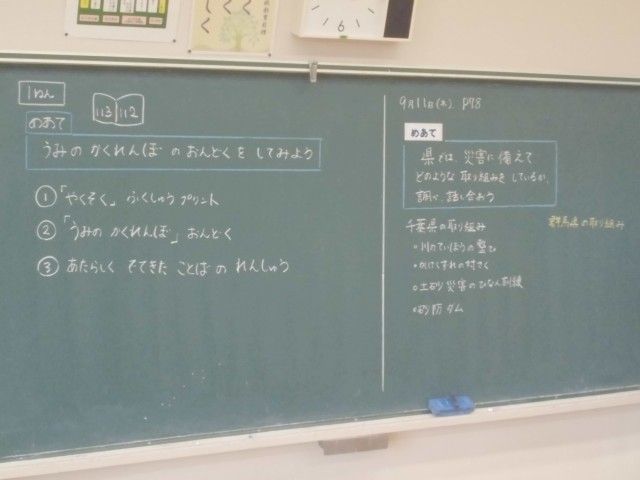 1ねん
113 112
めあて
うみの かくれんぼ の おんどく を してみよう
① 「やくそく」 ふくしゅう プリント
② 「うみの かくれんぼ」 おんどく
③ あたらしく でてきた ことば の れんしゅう
6
9月11日(木) P98
めあて
県では 災害に 備えて
どのような 取り組みを しているか、
調べ、話し合おう
千葉県の取り組み
・川のていぼうの整び
・がけくずれの対さく
・土砂災害のひなん訓練
・砂防ダム
群馬県の取り組み